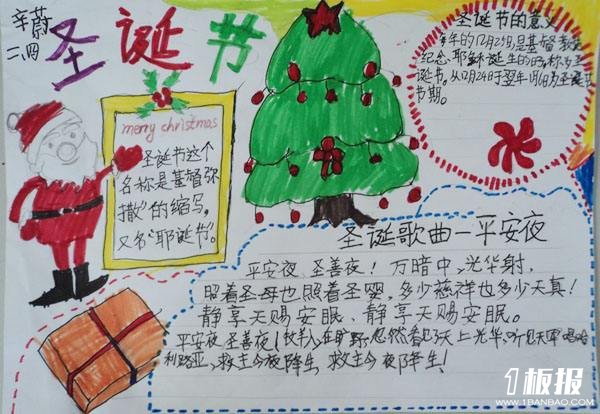 辛蔚
二、四
圣诞节
merry christmas
圣诞节这个
名称是基督弥
撒"的缩写,
又名"耶诞节"。
圣诞节的意义
年的12月25日,是基督教
纪念耶稣诞生的日
诞节,从12月24日于翌年1月
节期。
圣诞歌曲—平安夜
平安夜、圣善夜!万暗中,光华射,
照着圣母也照着圣婴,多少慈祥也多少天真!
静享天赐安眠、静享天赐安眠。
平安夜,圣善夜!牧羊人在旷野,忽然看见了天上光华,听见天军唱哈
利路亚,救主今夜降生,救主今夜降生!
1板报
WWW.1BANBAO.COM